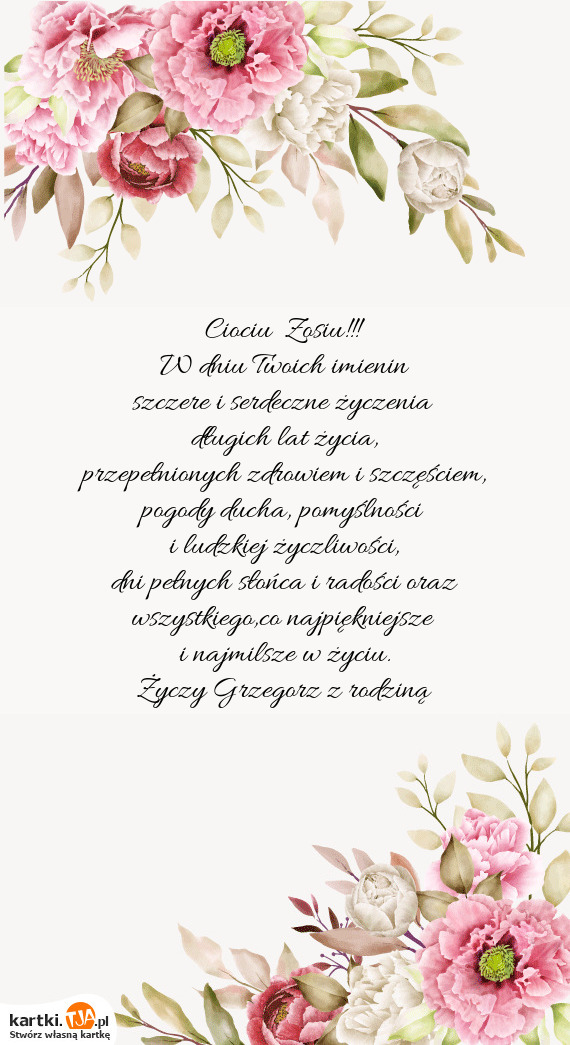 Ciociu Zosiu!!!
W dniu Twoich imienin
szczere i serdeczne życzenia
długich lat życia,
przepełnionych zdrowiem i szczęściem,
pogody ducha, pomyślności
i ludzkiej życzliwości,
dni pełnych słońca i radości oraz
wszystkiego,co najpiękniejsze
i najmilsze w życiu.
Życzy Grzegorz z rodziną
kartki.TJA.pl
Stwórz własną kartkę